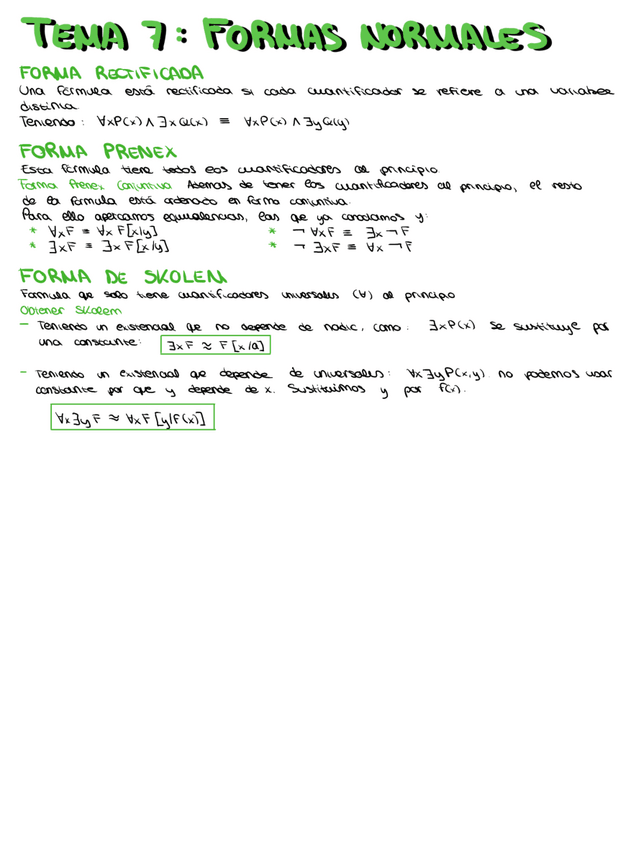 TEMA 7: FORMAS NORMALES
FORMA RECTIFICADA
Una fórmula está rectificada si cada cuantificador se refiere a una variable
distinta.
Teniendo: ∀xP(x) ∧ ∃xQ(x) ≡ ∀xP(x) ∧ ∃yQ(y)
FORMA PRENEX
Esta fórmula tiene todos los cuantificadores al principio
Forma Prenex Conjuntiva Además de tener los cuantificadores al principio, el resto
de la fórmula está ordenado en forma conjuntiva.
Para ello aplicamos equivalencias, las que ya conocíamos y:
* ∀xF ≡ ∀x F[x/y] * ¬∀xF ≡ ∃x¬F
* ∃xF ≡ ∃x F[x/y] * ¬∃xF ≡ ∀x¬F
FORMA DE SKOLEM
Formula que solo tiene cuantificadores universales (∀) al principio
Obtener Skolem
- Teniendo un existencial que no depende de nadie, como: ∃xP(x) se sustituye por
una constante: ∃xF ≈ F[x/a]
- Teniendo un existencial que depende de universales: ∀x∃yP(x,y). no podemos usar
constante por que y depende de x. Sustituimos y por f(x).
∀x∃yF ≈ ∀xF[y/f(x)]